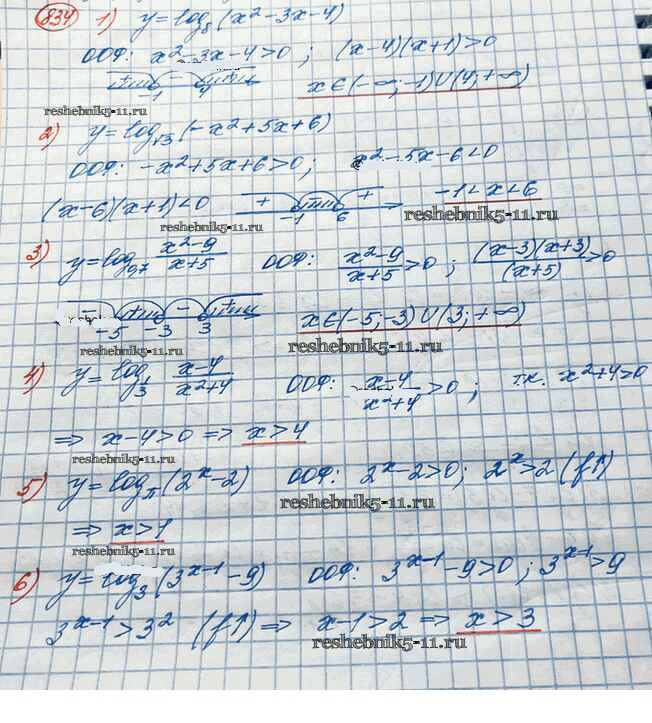 834 1) y = log₈(x² - 3x - 4)
ООФ: x² - 3x - 4 > 0 ; (x-4)(x+1) > 0
+ - + -1 4 x ∈ (-∞; -1) ∪ (4; +∞)
reshebnik5-11.ru
2) y = log√3(-x² + 5x + 6)
ООФ: -x² + 5x + 6 > 0 ; x² - 5x - 6 < 0
(x-6)(x+1) < 0 + -1 6 + -1 < x < 6
reshebnik5-11.ru reshebnik5-11.ru
3) y = log₀,₇ (x² - 9)/(x + 5) ООФ: (x² - 9)/(x + 5) > 0 ; ((x-3)(x+3))/(x+5) > 0
- + - + -5 -3 3 x ∈ (-5; -3) ∪ (3; +∞)
reshebnik5-11.ru reshebnik5-11.ru
4) y = log₁/₃ (x-4)/(x²+4) ООФ: (x-4)/(x²+4) > 0 ; т.к. x² + 4 > 0
⇒ x - 4 > 0 ⇒ x > 4
reshebnik5-11.ru
5) y = log_π(2ˣ - 2) ООФ: 2ˣ - 2 > 0 ; 2ˣ > 2 (f↑)
reshebnik5-11.ru
⇒ x > 1
reshebnik5-11.ru
6) y = log₃(3ˣ⁻¹ - 9) ООФ: 3ˣ⁻¹ - 9 > 0 ; 3ˣ⁻¹ > 9
3ˣ⁻¹ > 3² (f↑) ⇒ x - 1 > 2 ⇒ x > 3
reshebnik5-11.ru